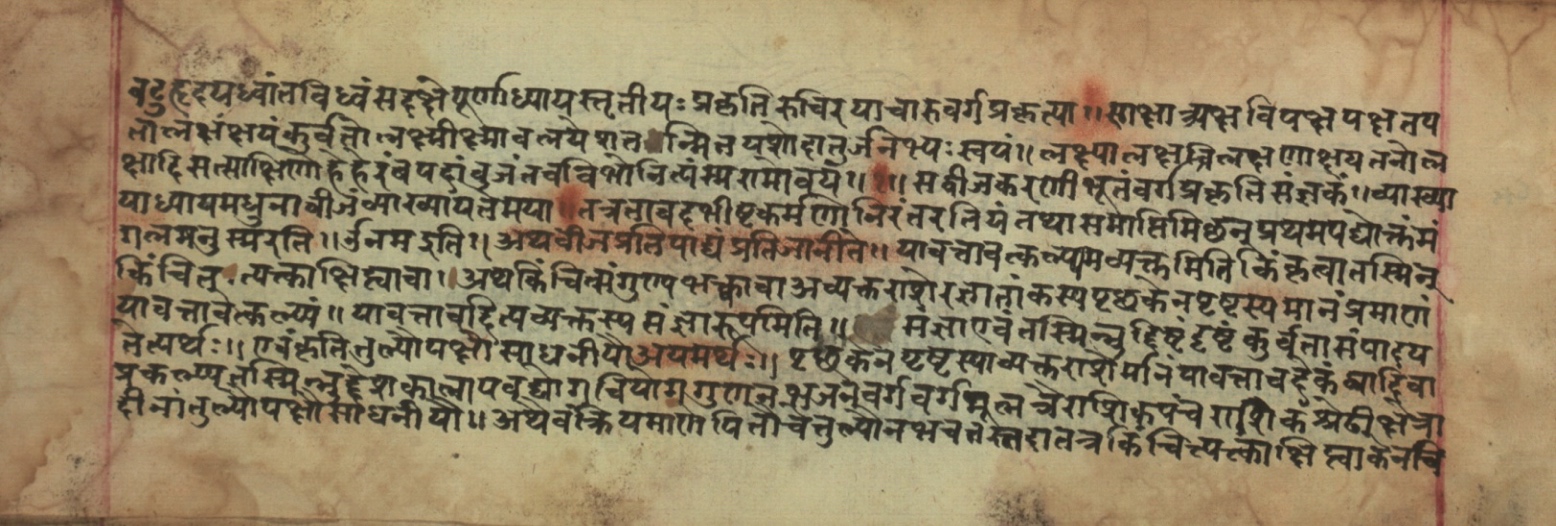 बटुहृदयध्वांतविध्वंसदक्षे पूर्णोध्यायस्तृतीयः प्रकृतिरुचिरयाचारुवर्गप्रकृत्या ॥ साक्षाअक्षविपक्षपक्षतप
तोलक्षंक्षयंकुर्वतो लक्ष्मीक्ष्मावलयेशत न्मितयशोदातुर्जनेभ्यः स्वयं ॥ लक्ष्यालक्षविलक्षणाक्षयतनोल
क्षादिसत्साक्षिणो हेरंबपदांबुजंतवविभोनित्यंस्मरामावयं ॥ १ ॥ सबीजकरणीभूतंवर्गप्रकृतिसंज्ञकं ॥ व्याख्या
याध्यायमधुनाबीजंव्याख्यायतेमया तत्रतावदभीष्टकर्मणोनिरंतरतियं तथासमाप्तिमिछन् प्रथमपद्योक्तंमं
गलमनुस्मरति ॥ र्जनमइति ॥ अथबीजप्रतिपाद्यं प्रतिजानीते ॥ यावत्तावत्कल्प्यमव्यक्तमितिकिंकृत्वातस्मिन्
किंचित् त्यक्ताक्षिप्त्वावा । अथकिंचित्संगुण्यभक्त्वावा अव्यक्तराशेरज्ञातांकस्यपृछकेनपृष्टस्यमानंप्रमाणं
यावत्तावत्कल्प्यं ॥ यावत्तावदित्यव्यक्तस्यसंज्ञारूपमिति ॥ संज्ञाएवंतस्मिन्नुद्दिष्टंदृष्टंकुर्वतासंपादय
तेत्यर्थः ॥ एवंकृतेतुल्यौपक्षौसाधनीयौ अयमर्थः ॥ पृछकेनपृष्टस्याव्यक्तराशेर्मानंयावत्तावदेकंद्व्यादिवा
प्रकल्प्यतस्मिन्नुद्देशकालापवद्योगवियोगगुणनभजनवर्गवर्गमूलत्रैराशिकपंचराशिकश्रेढीक्षेत्रा
दीनांतुल्यौपक्षौसाधनीयौ ॥ अथैवंक्रियमाणेपितौचेत्तुल्यौनभवतस्तदातत्रकिंचित्यक्ताक्षिप्त्वाकेनचि